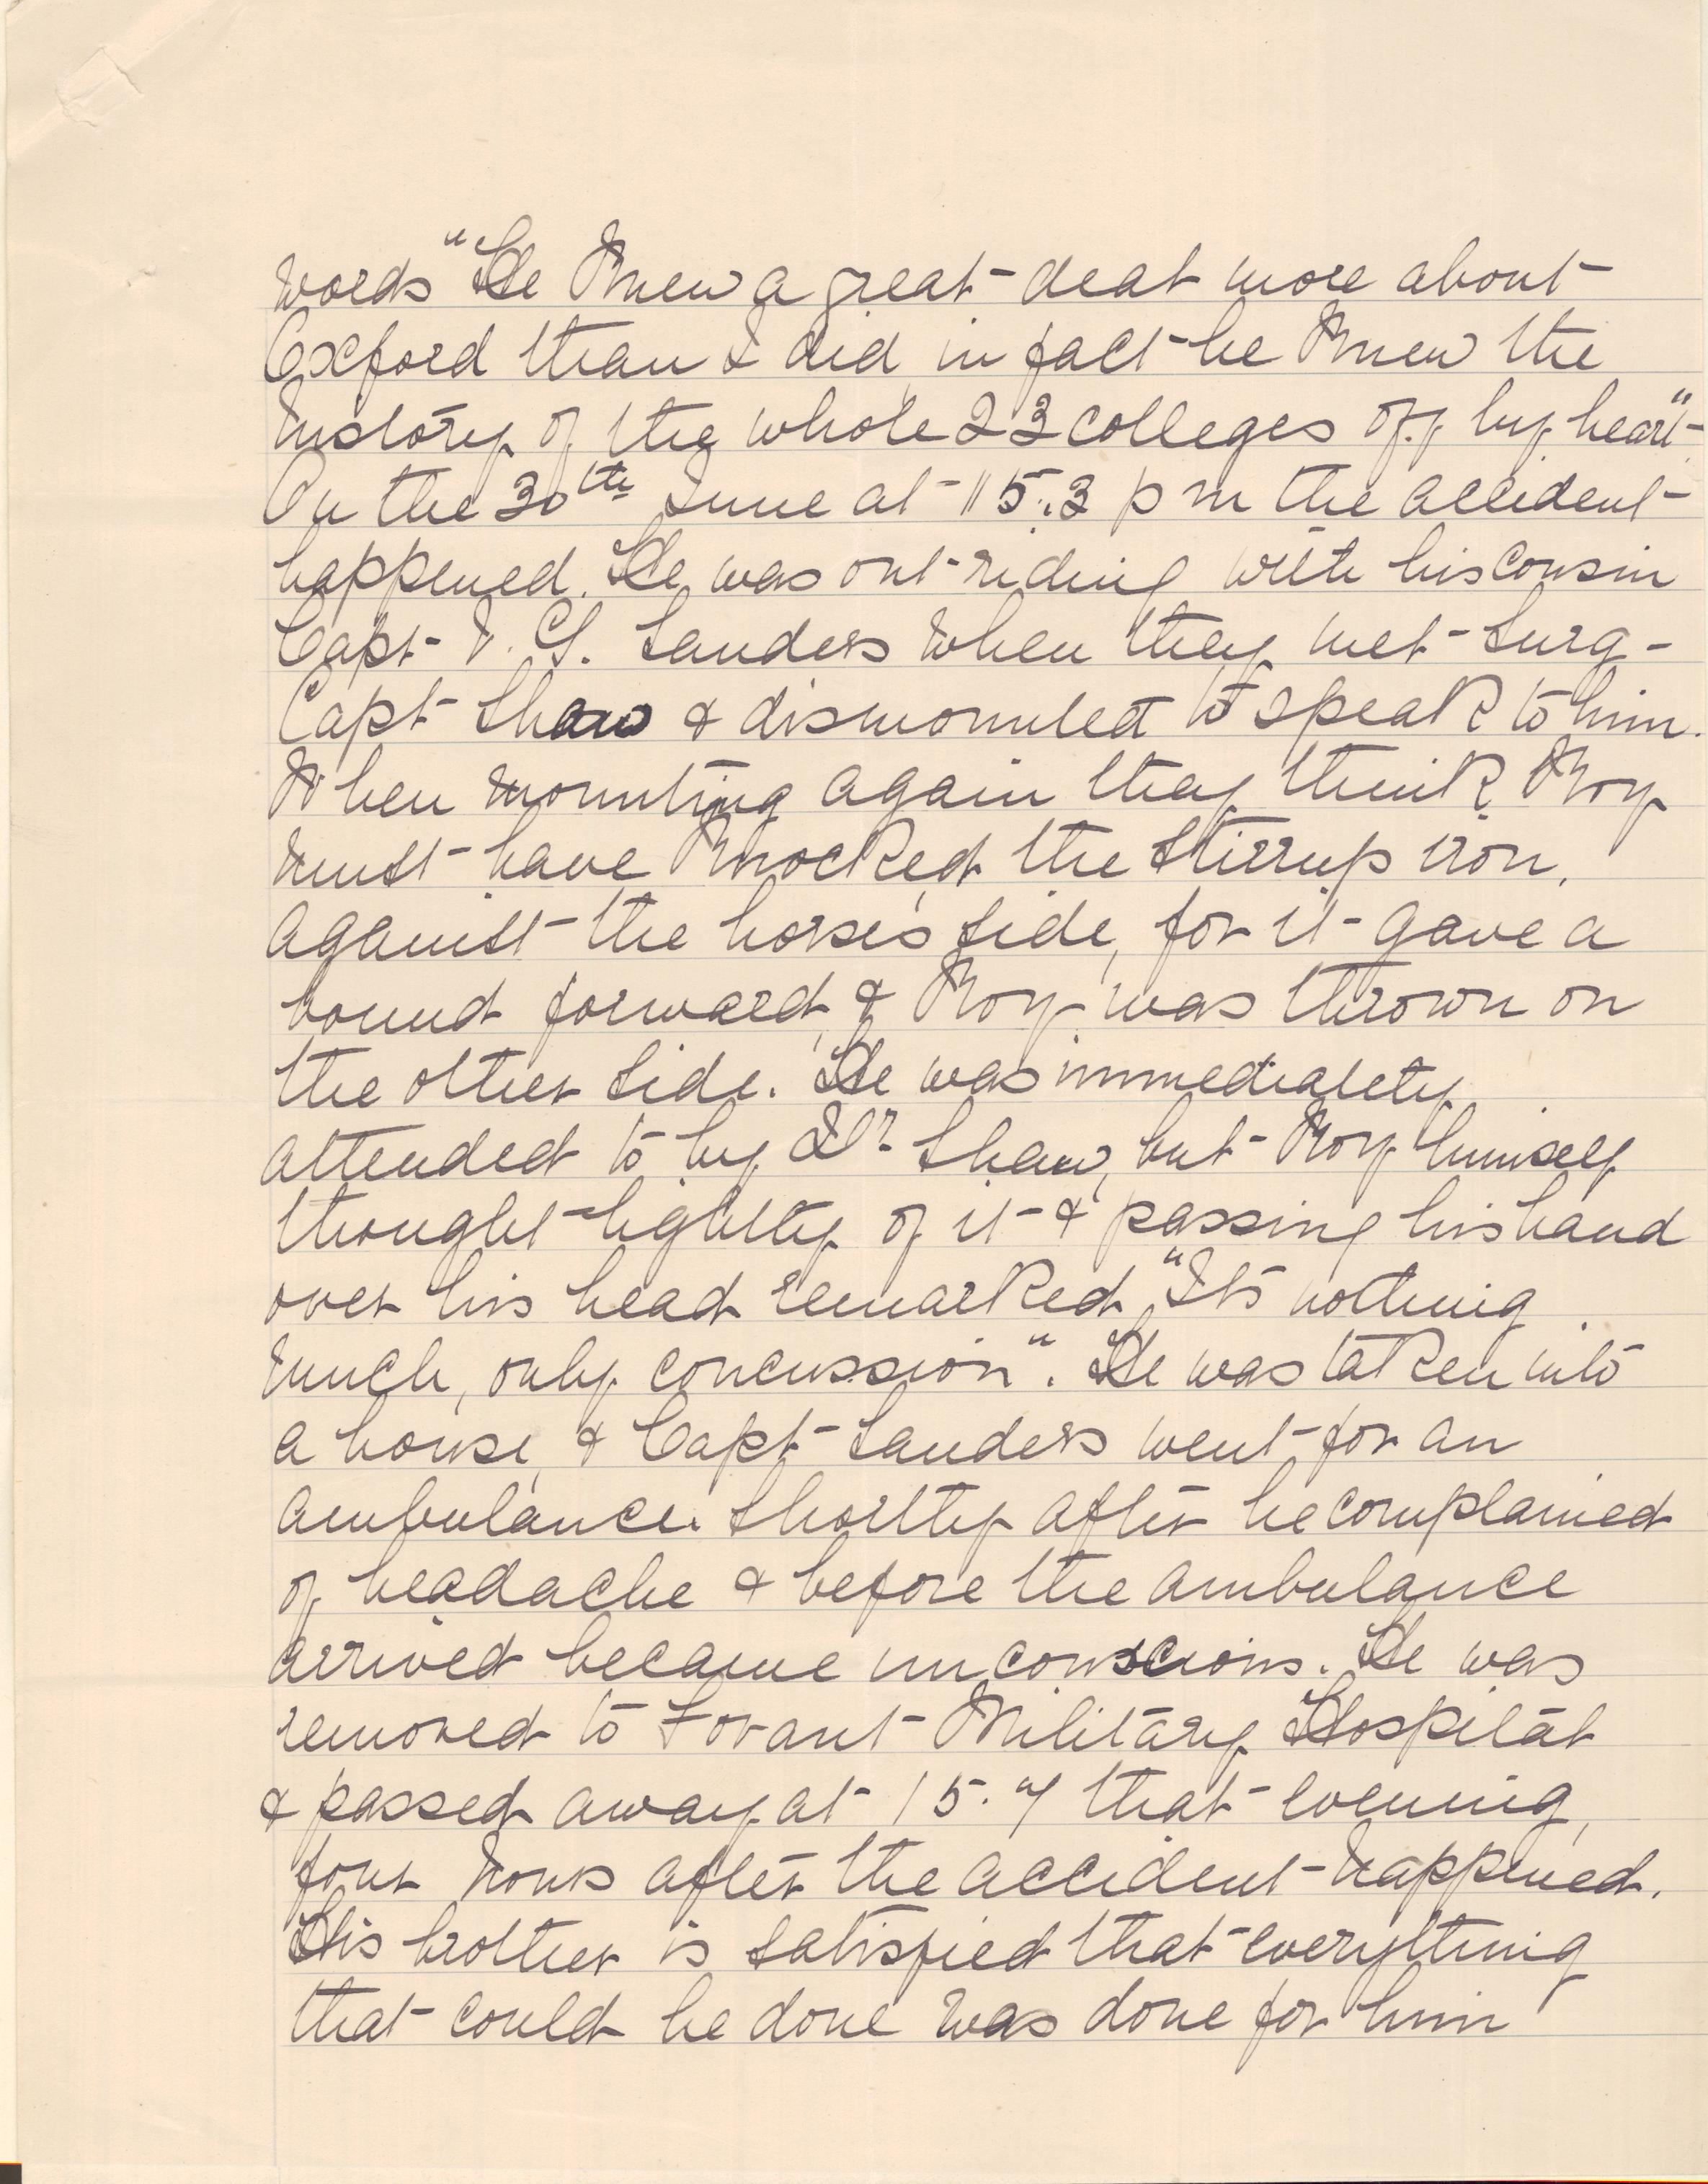 words "He knew a great deal more about
Oxford than I did, in fact he knew the
history of the whole 23 colleges off by heart".
On the 30th June at 1/5.3 pm the accident
happened. He was out riding with his cousin
Capt. V. G. Sanders when they met Surg-
Capt Shaw & dismounted to speak to him.
When mounting again they think Roy
must have knocked the stirrup iron,
against the horse's side, for it gave a
bound forward, & Roy was thrown on
the other side. He was immediately
attended to by Dr. Shaw, but Roy himself
thought lightly of it & passing his hand
over his head remarked, "It's nothing
much, only concussion". He was taken into
a house, & Capt Sanders went for an
ambulance. Shortly after he complained
of headache & before the ambulance
arrived became unconscious. He was
removed to Fovant Military Hospital
& passed away at 15.7 that evening,
four hours after the accident happened.
His brother is satisfied that everything
that could be done was done for him